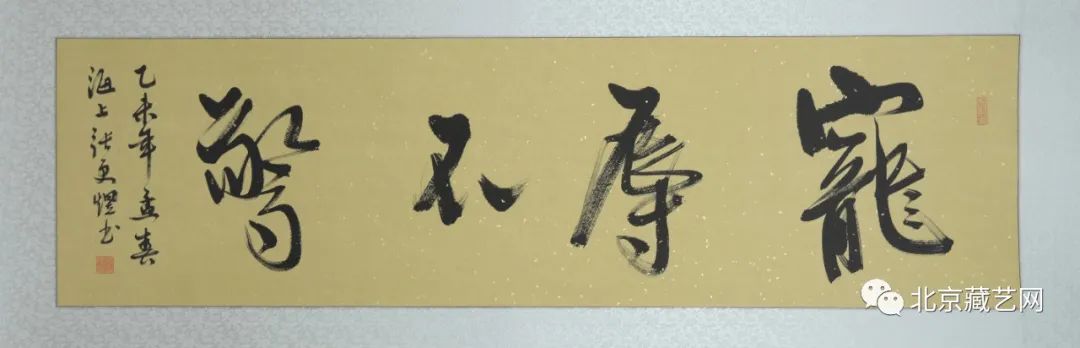 寵辱不驚
乙未年孟春
海上張更煜书
北京藏艺网